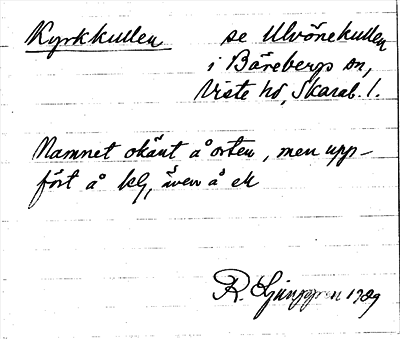 Kyrkkullen se Ulvönekullen
i Bärebergs sn,
Viste hd, Skarab. l.
Namnet okänt å orten, men upp-
fört å kg, även å ek
R. Ljunggren 1989